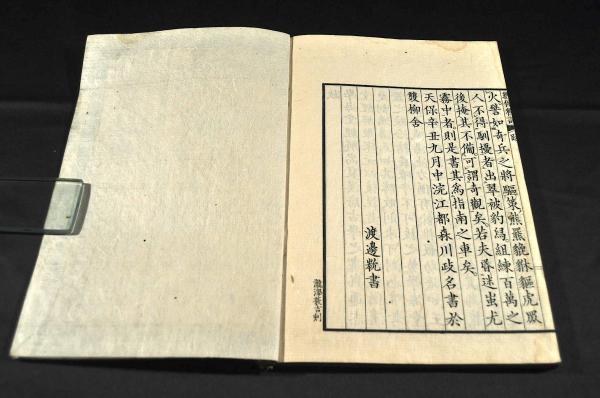 火譬如奇兵之將驅策熊羆貔貅貙虎服
人不得馴擾者出翠被豹舄組練百萬之
後掩其不備可謂奇觀矣若夫昏迷蚩尤
霧中者則是書其為指南之車矣
天保辛丑九月中浣江都森川歧名書於
雙柳舍
渡邊觥書
瀧澤敬吉刻